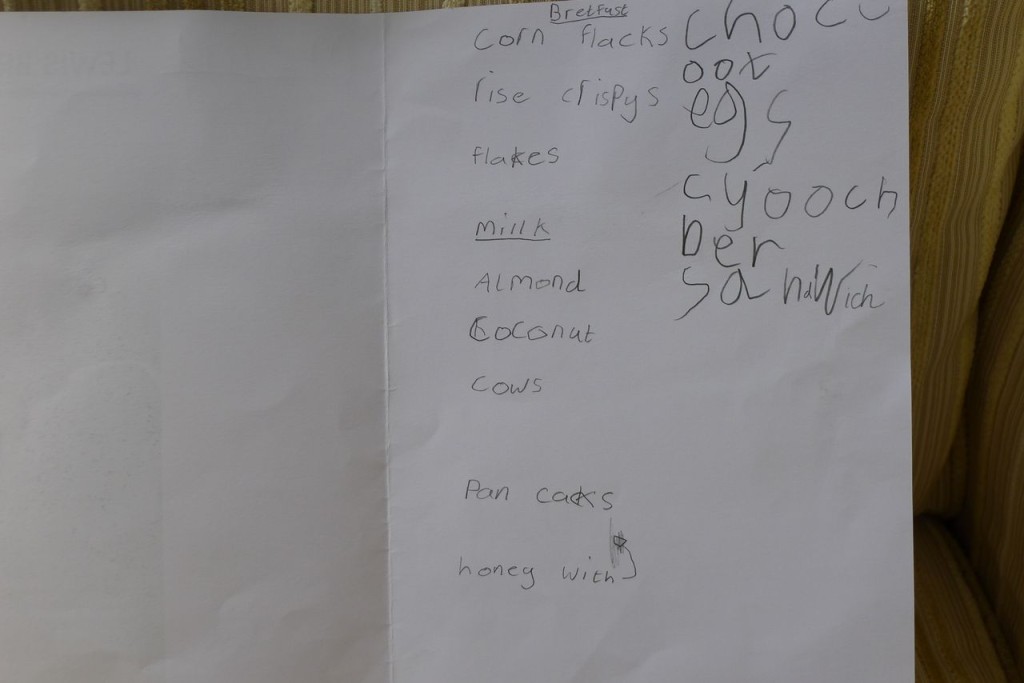 Bretfast
corn flacks
rise crispys
flakes
millk
ALmond
Coconut
cows
Pan cacks
honey with
choco
oot
egs
cyooch
ber
sandwich